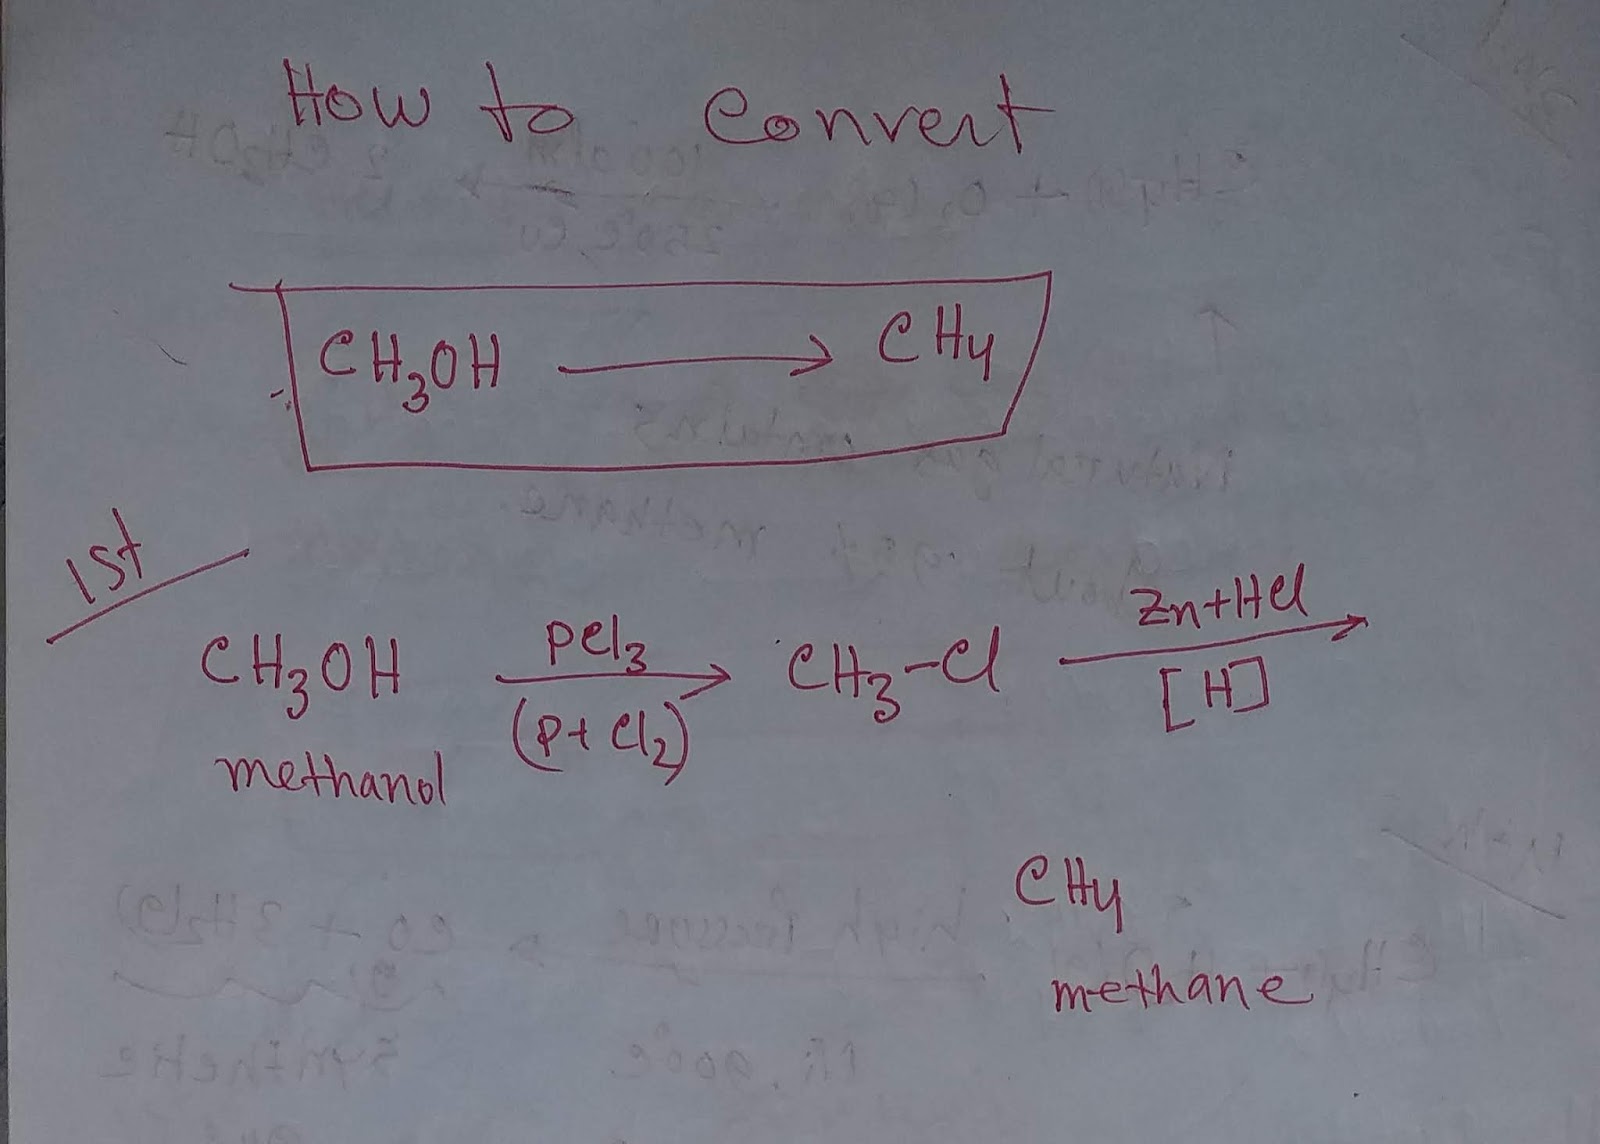 How to Convert
CH₃OH ⟶ CH₄
1st
CH₃OH PCl₃ ⟶ (P+Cl₂) CH₃-Cl Zn+HCl ⟶ [H]
methanol
CH₄
methane